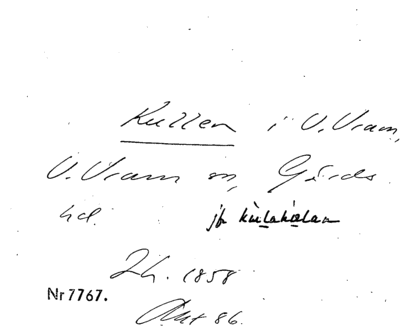 Kullen i V. Vram,
V. Vram sn, Gärds
hd. jfr kùlahàlan
Lh. 1858
Nr 7767.
Akt 86.